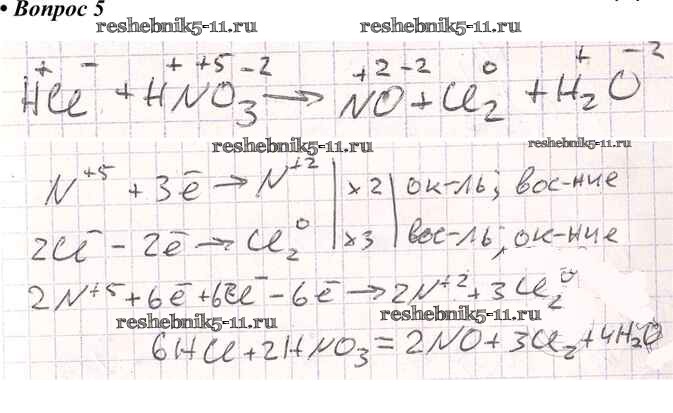 • Вопрос 5
reshebnik5-11.ru reshebnik5-11.ru
+ - + +5 -2 +2 -2 0 + -2
HCl + HNO₃ → NO + Cl₂ + H₂O
reshebnik5-11.ru reshebnik5-11.ru
N⁺⁵ + 3ē → N⁺² | x2 | ок-ль; вос-ние
2Cl⁻ - 2ē → Cl₂⁰ | x3 | вос-ль, ок-ние
2N⁺⁵ + 6ē + 6Cl⁻ - 6ē → 2N⁺² + 3Cl₂⁰
reshebnik5-11.ru
6HCl + 2HNO₃ = 2NO + 3Cl₂ + 4H₂O